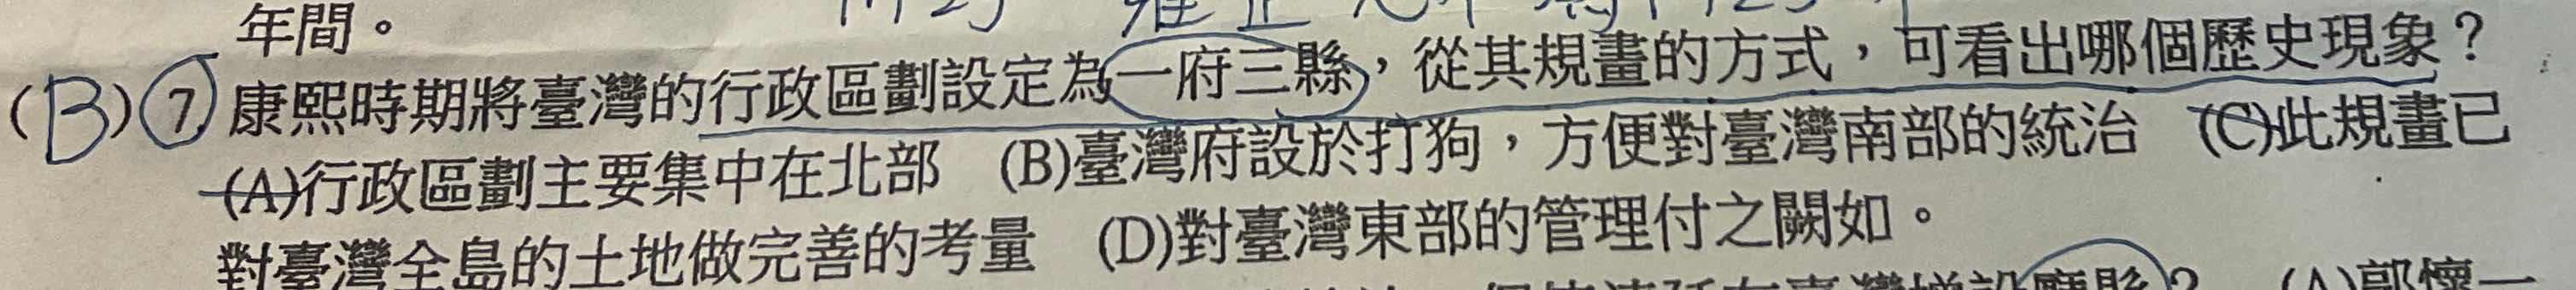 年間。
(B)⑦康熙時期將臺灣的行政區劃設定為一府三縣，從其規畫的方式，可看出哪個歷史現象？
(A)行政區劃主要集中在北部　(B)臺灣府設於打狗，方便對臺灣南部的統治　(C)此規畫已
對臺灣全島的土地做完善的考量　(D)對臺灣東部的管理付之闕如。
(A)郭懷一